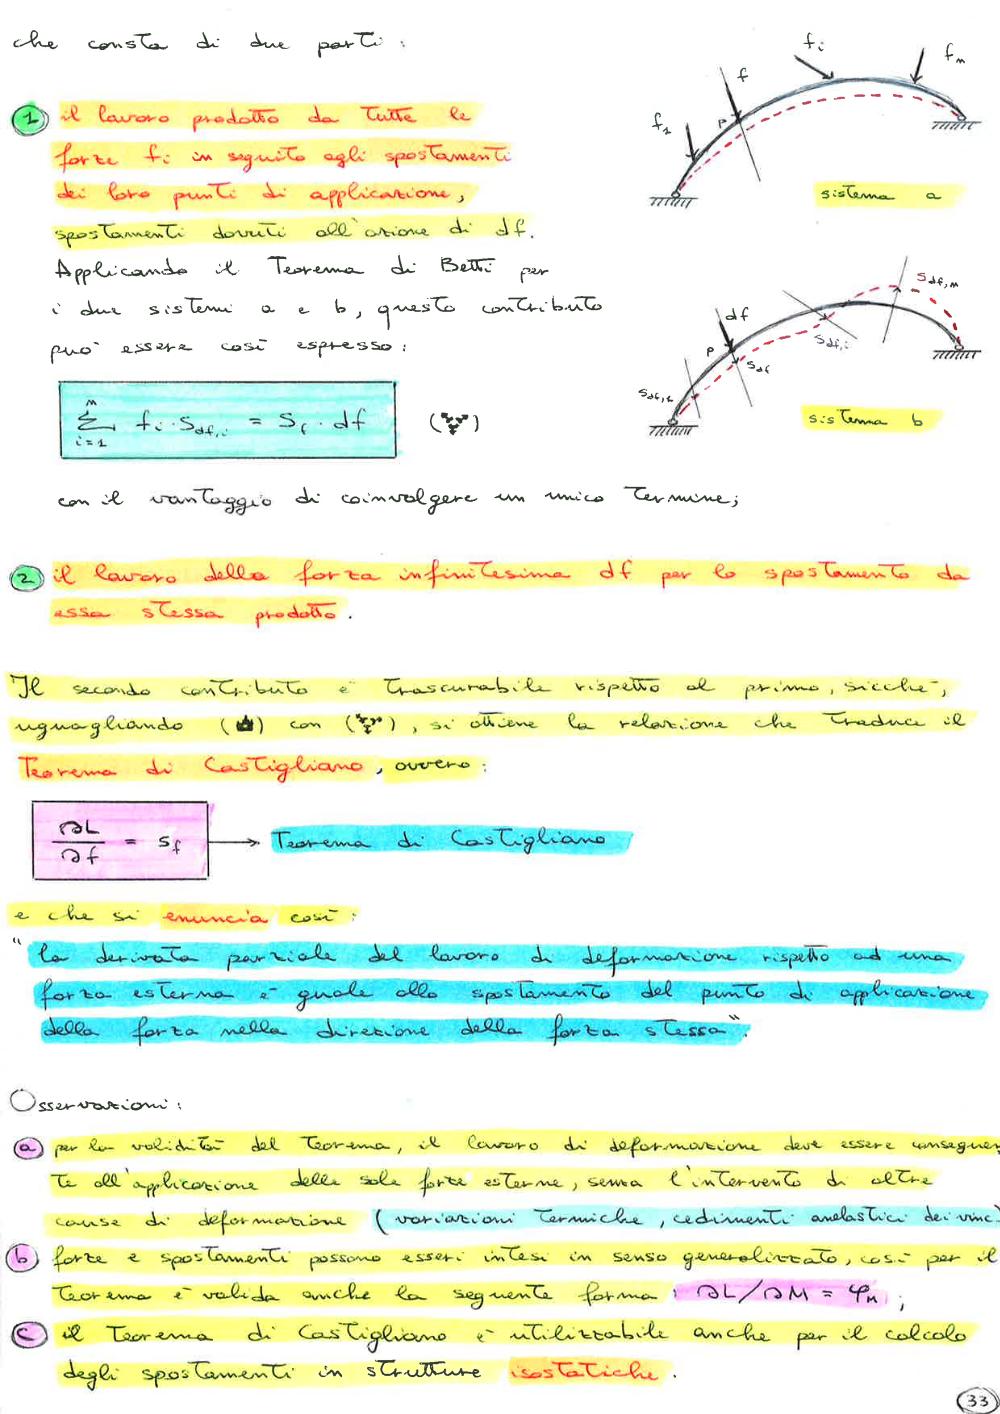 che consta di due parti:
1 il lavoro prodotto da tutte le
forze fi in seguito agli spostamenti
dei loro punti di applicazione,
spostamenti dovuti all'azione di df.
Applicando il Teorema di Betti per
i due sistemi a e b, questo contributo
può essere così espresso:
n
∑ fi · Sdf,i = Sf · df
i=1
con il vantaggio di coinvolgere un unico termine;
f1
f
P
fi
fn
sistema a
Sdf,1
P
df
Sdf
Sdf,i
Sdf,n
sistema b
2 il lavoro della forza infinitesima df per lo spostamento da
essa stessa prodotto.
Il secondo contributo è trascurabile rispetto al primo, sicché,
uguagliando ( ) con ( ), si ottiene la relazione che traduce il
Teorema di Castigliano, ovvero:
∂L/∂f = sf → Teorema di Castigliano
e che si enuncia così:
"la derivata parziale del lavoro di deformazione rispetto ad una
forza esterna è guale allo spostamento del punto di applicazione
della forza nella direzione della forza stessa".
Osservazioni:
a per la validità del Teorema, il lavoro di deformazione deve essere conseguen
te all'applicazione delle sole forze esterne, senza l'intervento di altre
cause di deformazione (variazioni termiche, cedimenti anelastici dei vinc.
b forze e spostamenti possono esseri intesi in senso generalizzato, così per il
Teorema è valida anche la seguente forma: ∂L/∂M = φM ;
c il Teorema di Castigliano è utilizzabile anche per il calcolo
degli spostamenti in strutture isostatiche.
33